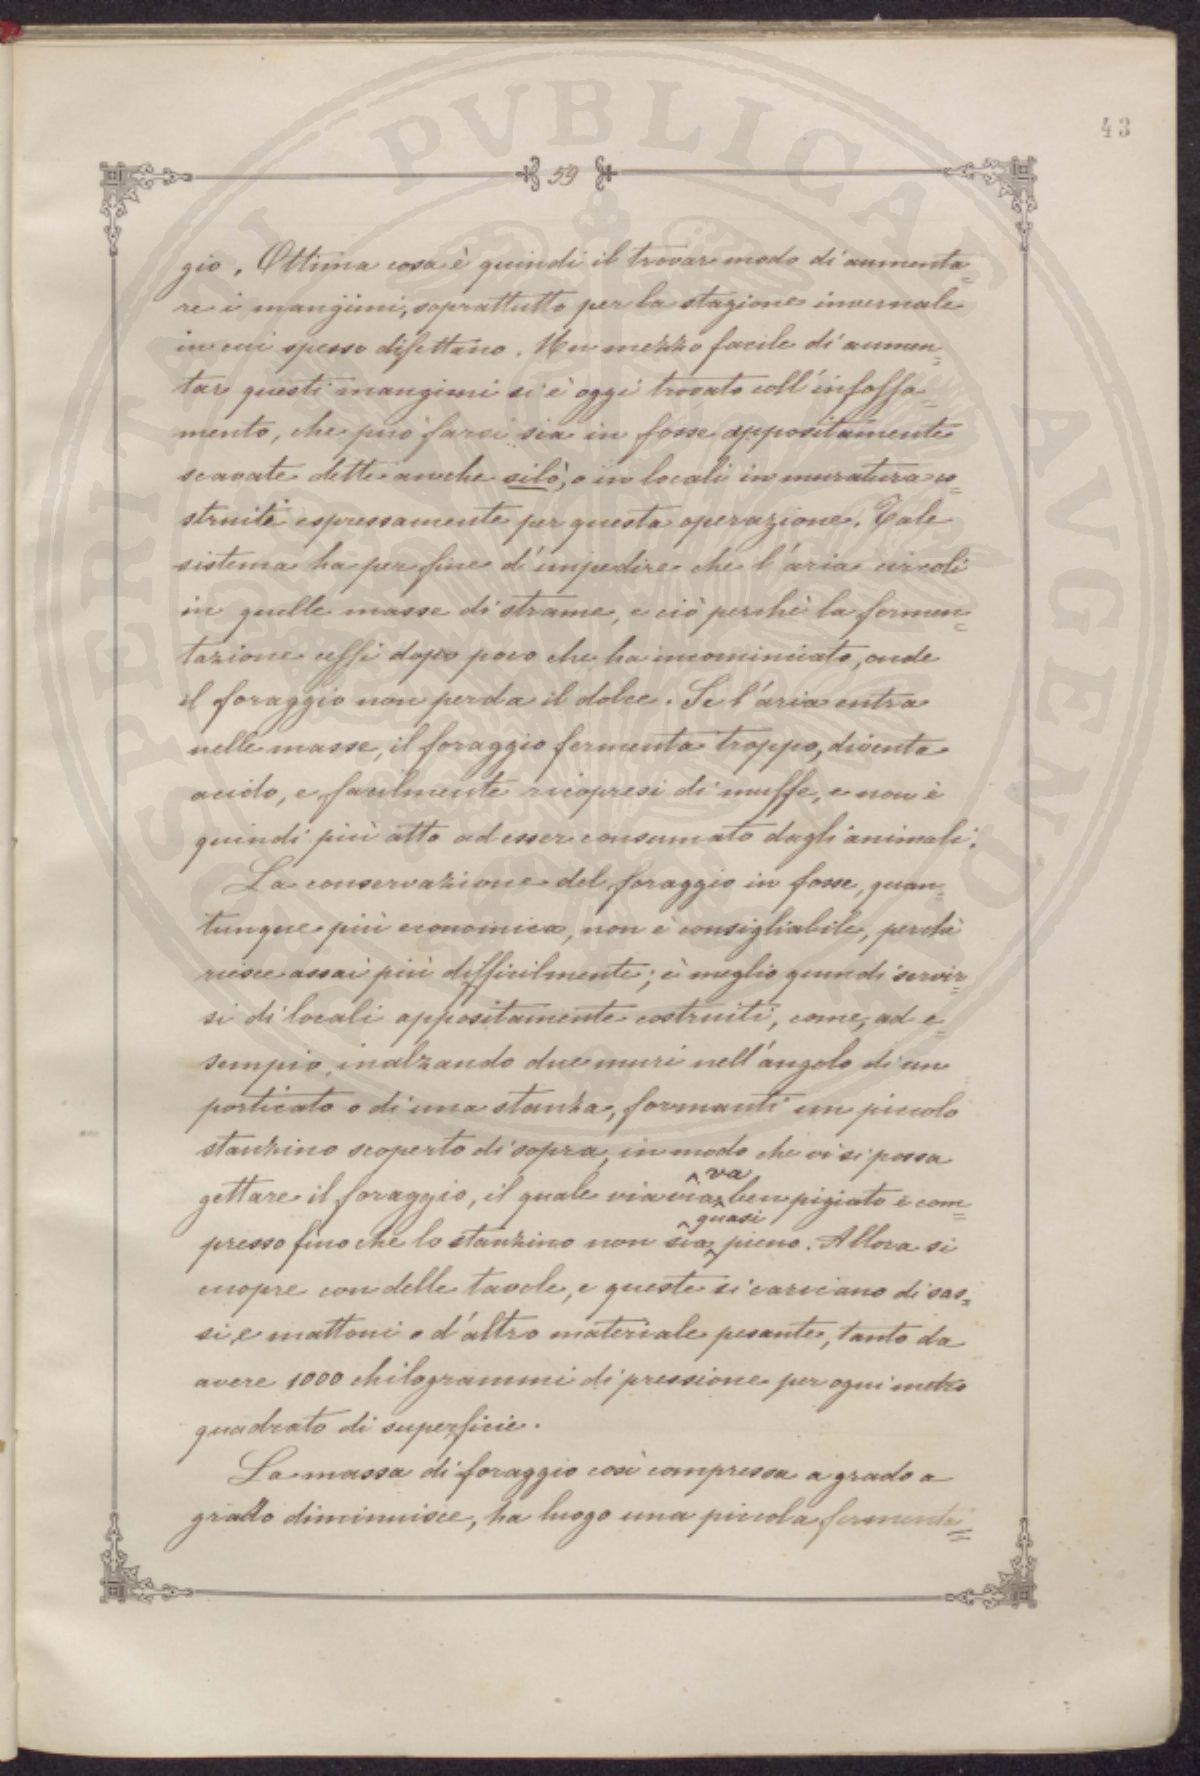 43
59
gio. Ottima cosa è quindi il trovar modo di aumenta=
re i mangimi, soprattutto per la stagione invernale
in cui spesso difettano. Un mezzo facile di aumen=
tar questi mangimi si è oggi trovato coll'infossa=
mento, che può farsi sia in fosse appositamente
scavate dette anche silò, o in locali in muratura co=
struite espressamente per questa operazione. Tale
sistema ha per fine d'impedire che l'aria circoli
in quelle masse di strame, e ciò perchè la fermen=
tazione cessi dopo poco che ha incominciato, onde
il foraggio non perda il dolce. Se l'aria entra
nelle masse, il foraggio fermenta troppo, diventa
acido, e facilmente ricopresi di muffe, e non è
quindi più atto ad esser consumato dagli animali.
La conservazione del foraggio in fosse, quan=
tunque più economica, non è consigliabile, perchè
riesce assai più difficilmente; è meglio quindi servir=
si di locali appositamente costruiti, come, ad e=
sempio, inalzando due muri nell'angolo di un
porticato o di una stanza, formanti un piccolo
stanzino scoperto di sopra, in modo che vi si possa
gettare il foraggio, il quale via via va ben pigiato e com=
presso fino che lo stanzino non sia quasi pieno. Allora si
cuopre con delle tavole, e queste si caricano di sas=
si, e mattoni o d'altro materiale pesante, tanto da
avere 1000 chilogrammi di pressione per ogni metro
quadrato di superficie.
La massa di foraggio così compressa a grado a
grado diminuisce, ha luogo una piccola fermenta=
PVBLICAT AVGENDO